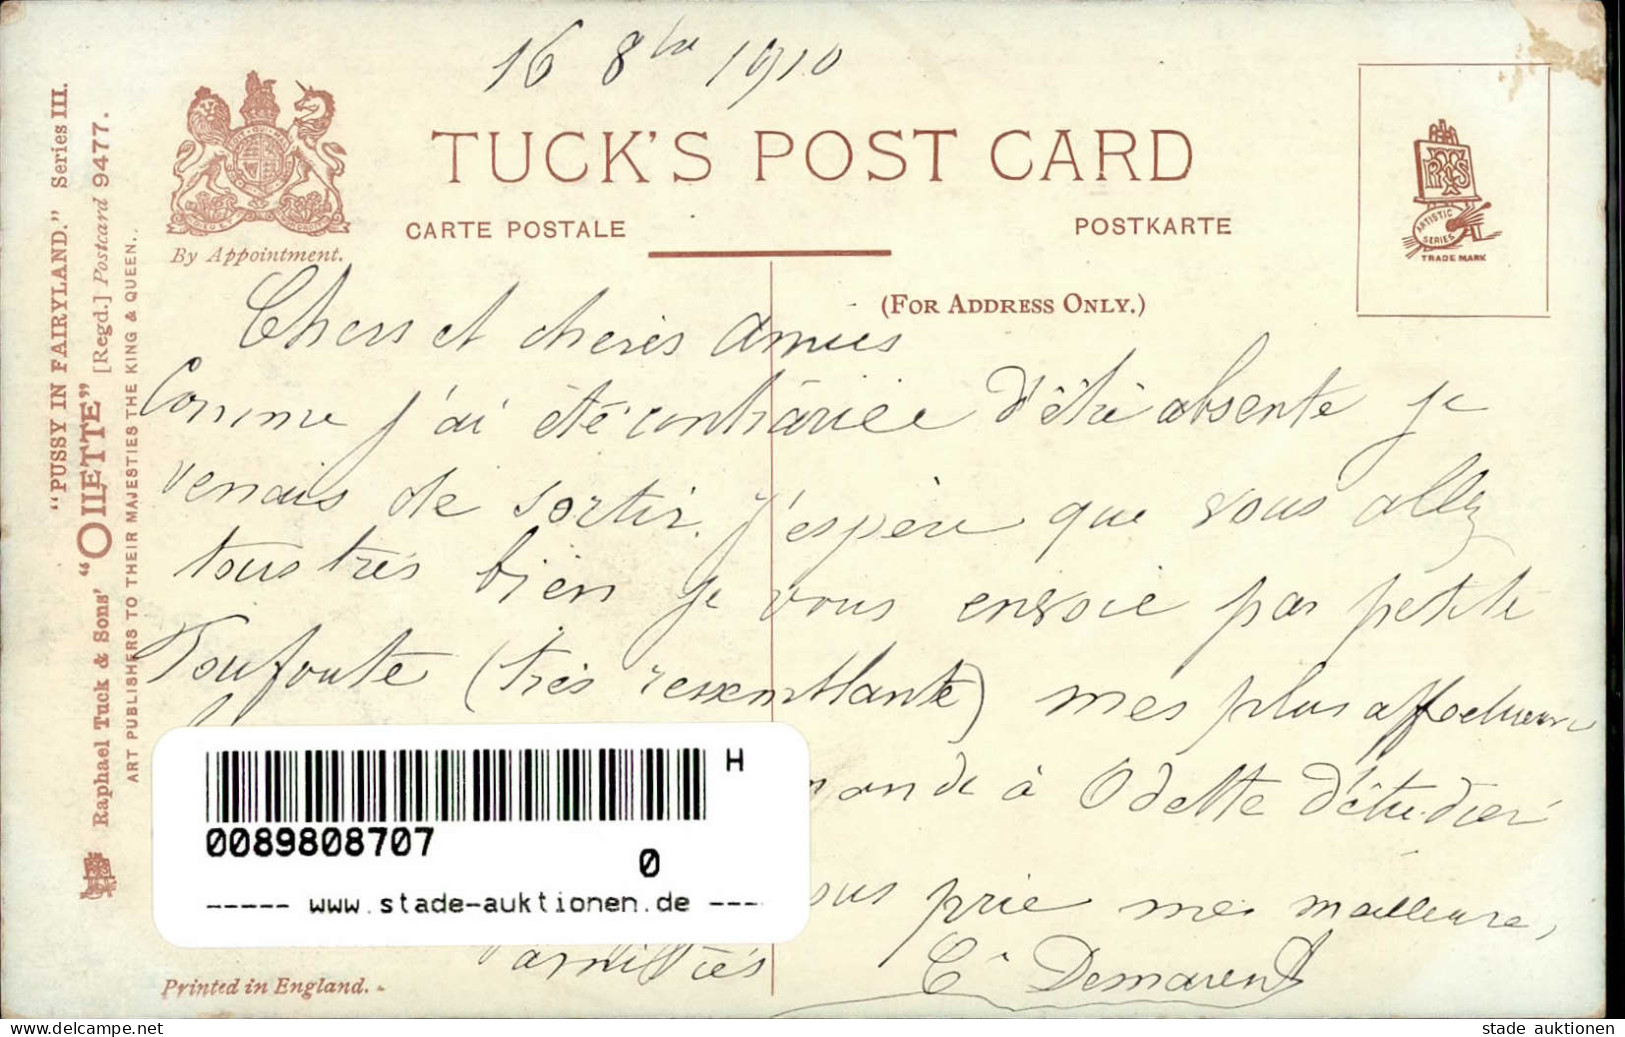 16 8bre 1910
TUCK'S POST CARD
CARTE POSTALE
POSTKARTE
By Appointment.
(FOR ADDRESS ONLY.)
ARTISTIC SERIES
TRADE MARK
"PUSSY IN FAIRYLAND." Series III.
Raphael Tuck & Sons' "OILETTE" [Regd.] Postcard 9477.
ART PUBLISHERS TO THEIR MAJESTIES THE KING & QUEEN.
Chers et chères Amies
Comme j'ai été contrariée d'être absente je
venais de sortir. J'espère que vous allez
tous très bien je vous envoie par petite
Toufoute (très ressemblante) mes plus affectueux
mande à Odette d'étudier
ous prie mes meilleures
amitiés
Demarent
H
0089808707
0
----- www.stade-auktionen.de ----
Printed in England.
stade auktionen